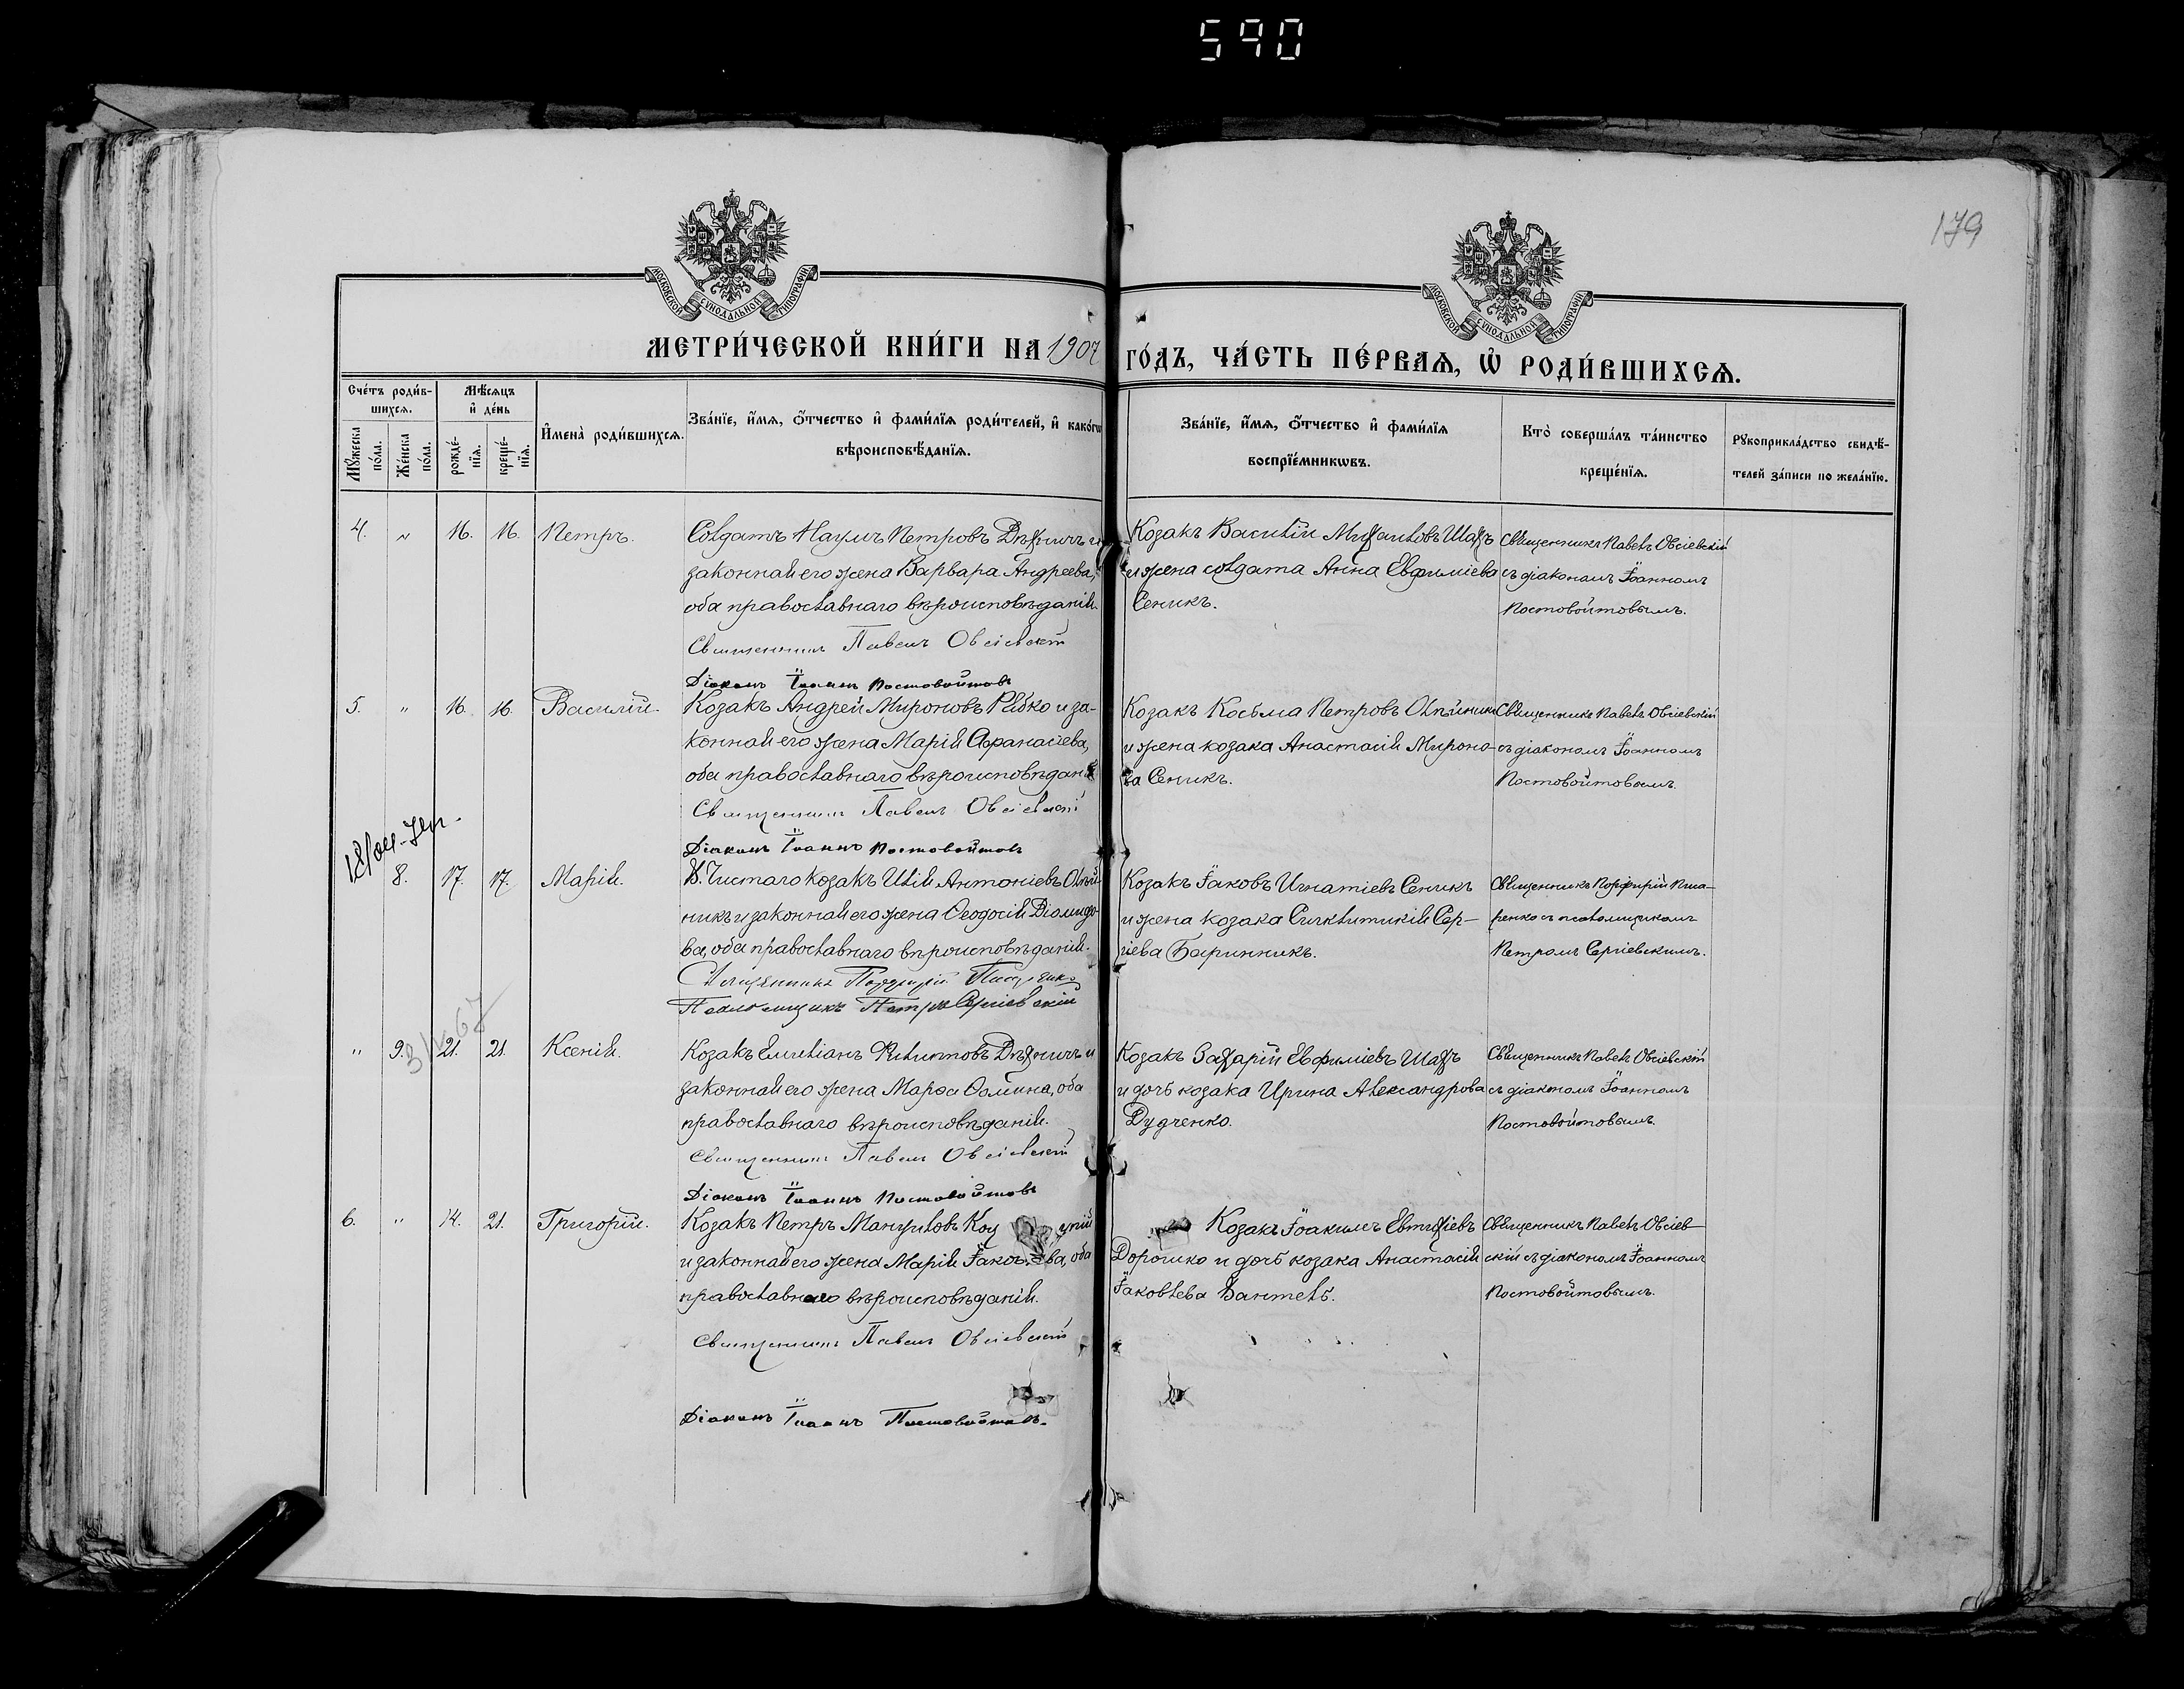 590
179
МОСКОВСКОЙ СѴНОДАЛЬНОЙ ТИПОГРАФІИ
МОСКОВСКОЙ СѴНОДАЛЬНОЙ ТИПОГРАФІИ
МЕТРИ́ЧЕСКОЙ КНИ́ГИ НА 1907 ГО́ДЪ, ЧА́СТЬ ПЕ́РВАѦ, Ѡ҆ РОДИ́ВШИХСѦ.
Сче́тъ роди́в-
шихсѧ.
Мꙋ́жеска по́ла.
Же́нска по́ла.
Мѣ́сѧцъ
и҆ де́нь
рожде́-
нїѧ.
креще́-
нїѧ.
И҆мена̀ роди́вшихсѧ.
Зва́нїе, и҆́мѧ, ѻ҆́тчество и҆ фами́лїѧ роди́телей, и҆ како́гѡ
вѣроисповѣ́данїѧ.
Зва́нїе, и҆́мѧ, ѻ҆́тчество и҆ фами́лїѧ
воспрїе́мникѡвъ.
Кто̀ соверша́лъ та́инство
креще́нїѧ.
Рꙋкоприкла́дство свидѣ́-
телей за́писи по жела́нїю.
4. " 16. 16. Петръ.
Солдатъ Наумъ Петровъ Дѣхничъ и
законная его жена Варвара Андреева,
оба православнаго вѣроисповѣданія.
Священникъ Павелъ Овсіевскій
Діаконъ Іоаннъ Постовойтовъ
Козакъ Василій Михаиловъ Шахъ
и жена солдата Анна Евфиміева
Сеникъ.
Священникъ Павелъ Овсіевскій
съ діакономъ Іоанномъ
Постовойтовымъ.
5. " 16. 16. Василій.
Козакъ Андрей Мироновъ Рябко и за-
конная его жена Марія Афанасіева,
оба православнаго вѣроисповѣданія
Священникъ Павелъ Овсіевскій
Діаконъ Іоаннъ Постовойтовъ
Козакъ Косьма Петровъ Олѣйникъ
и жена козака Анастасія Мироно-
ва Сеникъ.
Священникъ Павелъ Овсіевскій
съ діакономъ Іоанномъ
Постовойтовымъ.
8. 17. 17. Марія.
Х. Чистаго козакъ Илія Антоніевъ Олѣй-
никъ и законная его жена Ѳеодосія Діомидо-
ва, оба православнаго вѣроисповѣданія.
Священникъ Порфирій Писаренко
Псаломщикъ Петръ Сергіевскій
Козакъ Іаковъ Игнатіевъ Сеникъ
и жена козака Синклитикія Сер-
гіева Баринникъ.
Священникъ Порфирій Писа-
ренко съ псаломщикомъ
Петромъ Сергіевскимъ.
" 9. 21. 21. Ксенія.
Козакъ Емиліанъ Филипповъ Дѣхничъ и
законная его жена Марѳа Ѳомина, оба
православнаго вѣроисповѣданія.
Священникъ Павелъ Овсіевскій
Діаконъ Іоаннъ Постовойтовъ
Козакъ Захарій Евфиміевъ Шахъ
и дочь козака Ирина Александрова
Дудченко.
Священникъ Павелъ Овсіевскій
съ діакономъ Іоанномъ
Постовойтовымъ.
6. " 14. 21. Григорій.
Козакъ Петръ Мануиловъ
и законная его жена Марія Іаковлева, оба
православнаго вѣроисповѣданія.
Священникъ Павелъ Овсіевскій
Діаконъ Іоаннъ Постовойтовъ.
Козакъ Іоакимъ Евтихіевъ
Дорошко и дочь козака Анастасія
Іаковлева Вантель.
Священникъ Павелъ Овсіев-
скій съ діакономъ Іоанномъ
Постовойтовымъ.